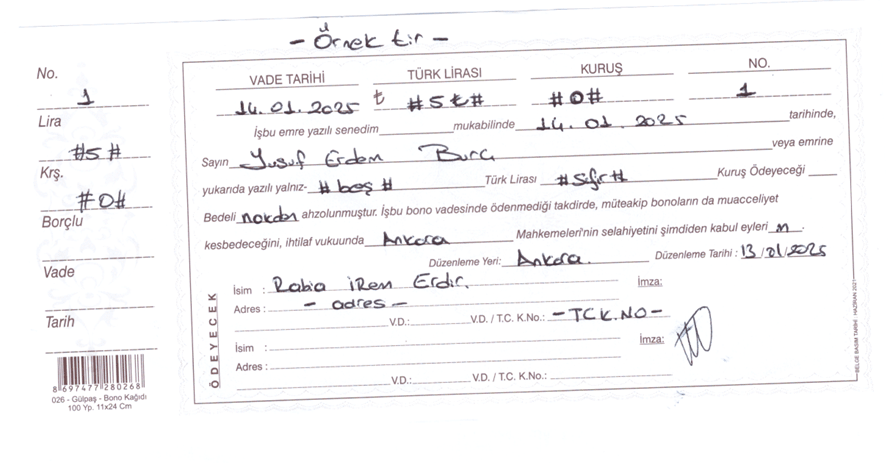 - Örnek tir -
No.
1
Lira
#5#
Krş.
#0#
Borçlu
Vade
Tarih
8 697477 280268
026 - Gülpaş - Bono Kağıdı
100 Yp. 11x24 Cm
VADE TARİHİ TÜRK LİRASI KURUŞ NO.
14.01.2025 ₺ #5₺# #0# 1
İşbu emre yazılı senedim mukabilinde 14.01.2025 tarihinde,
Sayın Yusuf Erdem Burcı veya emrine
yukarıda yazılı yalnız- #beş# Türk Lirası #sıfır# Kuruş Ödeyeceği
Bedeli nakden ahzolunmuştur. İşbu bono vadesinde ödenmediği takdirde, müteakip bonoların da muacceliyet
kesbedeceğini, ihtilaf vukuunda Ankara Mahkemeleri'nin selahiyetini şimdiden kabul eyleri m.
Düzenleme Yeri: Ankara. Düzenleme Tarihi : 13/01/2025
ÖDEYECEK
İsim : Rabia İrem Erdir. İmza:
Adres : - adres -
V.D.: V.D. / T.C. K.No.: - TCK.NO -
İsim : İmza:
Adres :
V.D.: V.D. / T.C. K.No.:
BELGE BASIM TARİHİ : HAZİRAN 2021